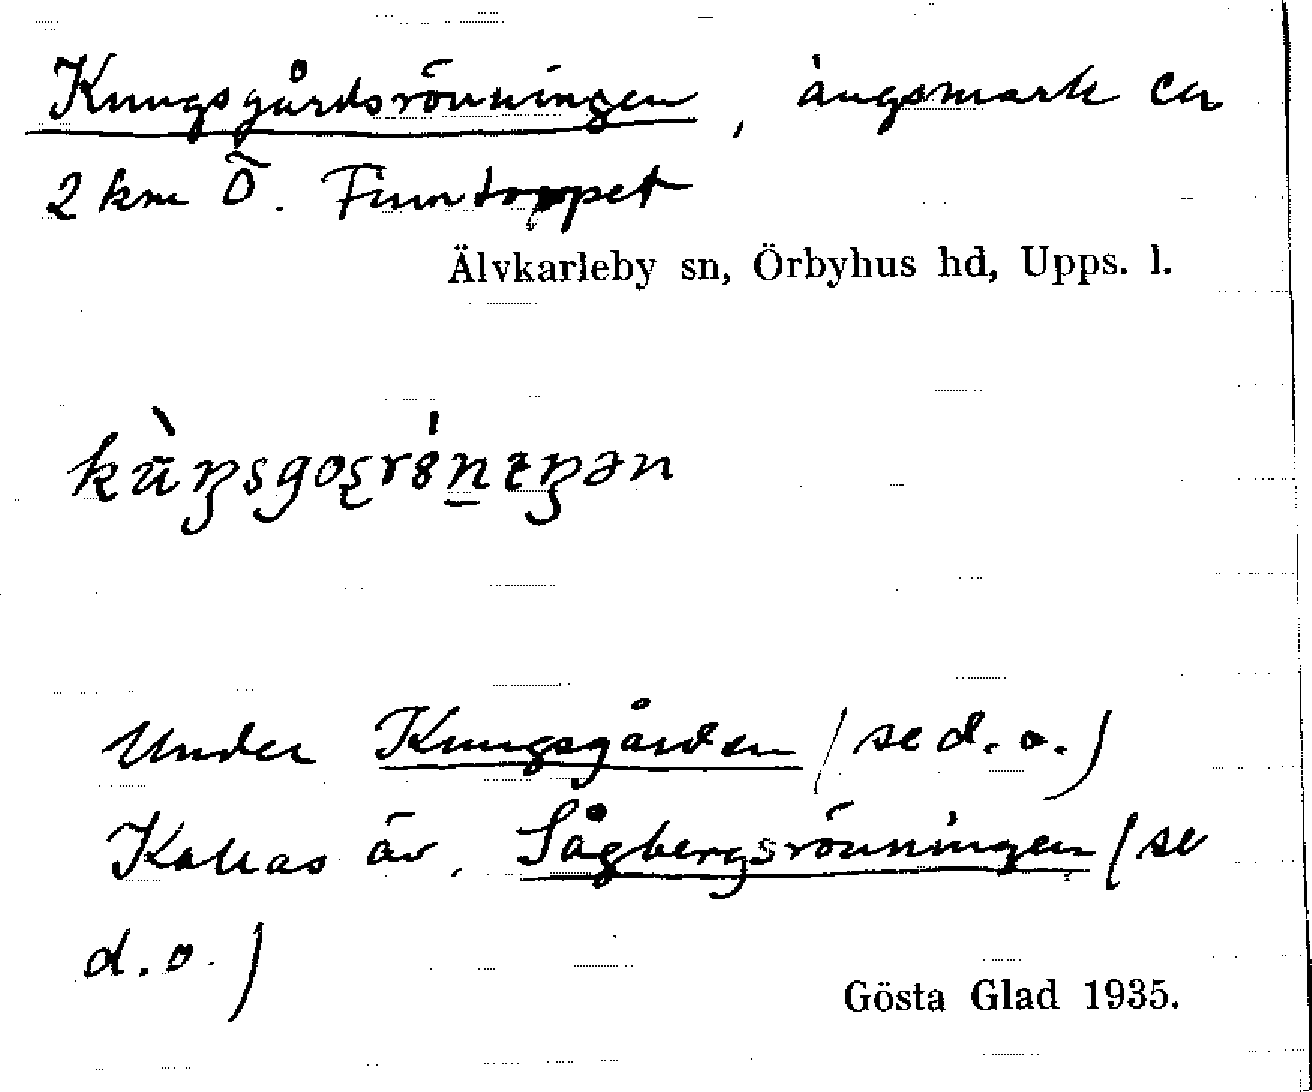 Kungsgårdsrönningen, ängsmark ca
2 km Ö. Finntorppet
Älvkarleby sn, Örbyhus hd, Upps. l.
Under Kungsgården (se d. o.)
Kallas äv. Sågbergsrönningen (se
d. o.)
Gösta Glad 1935.